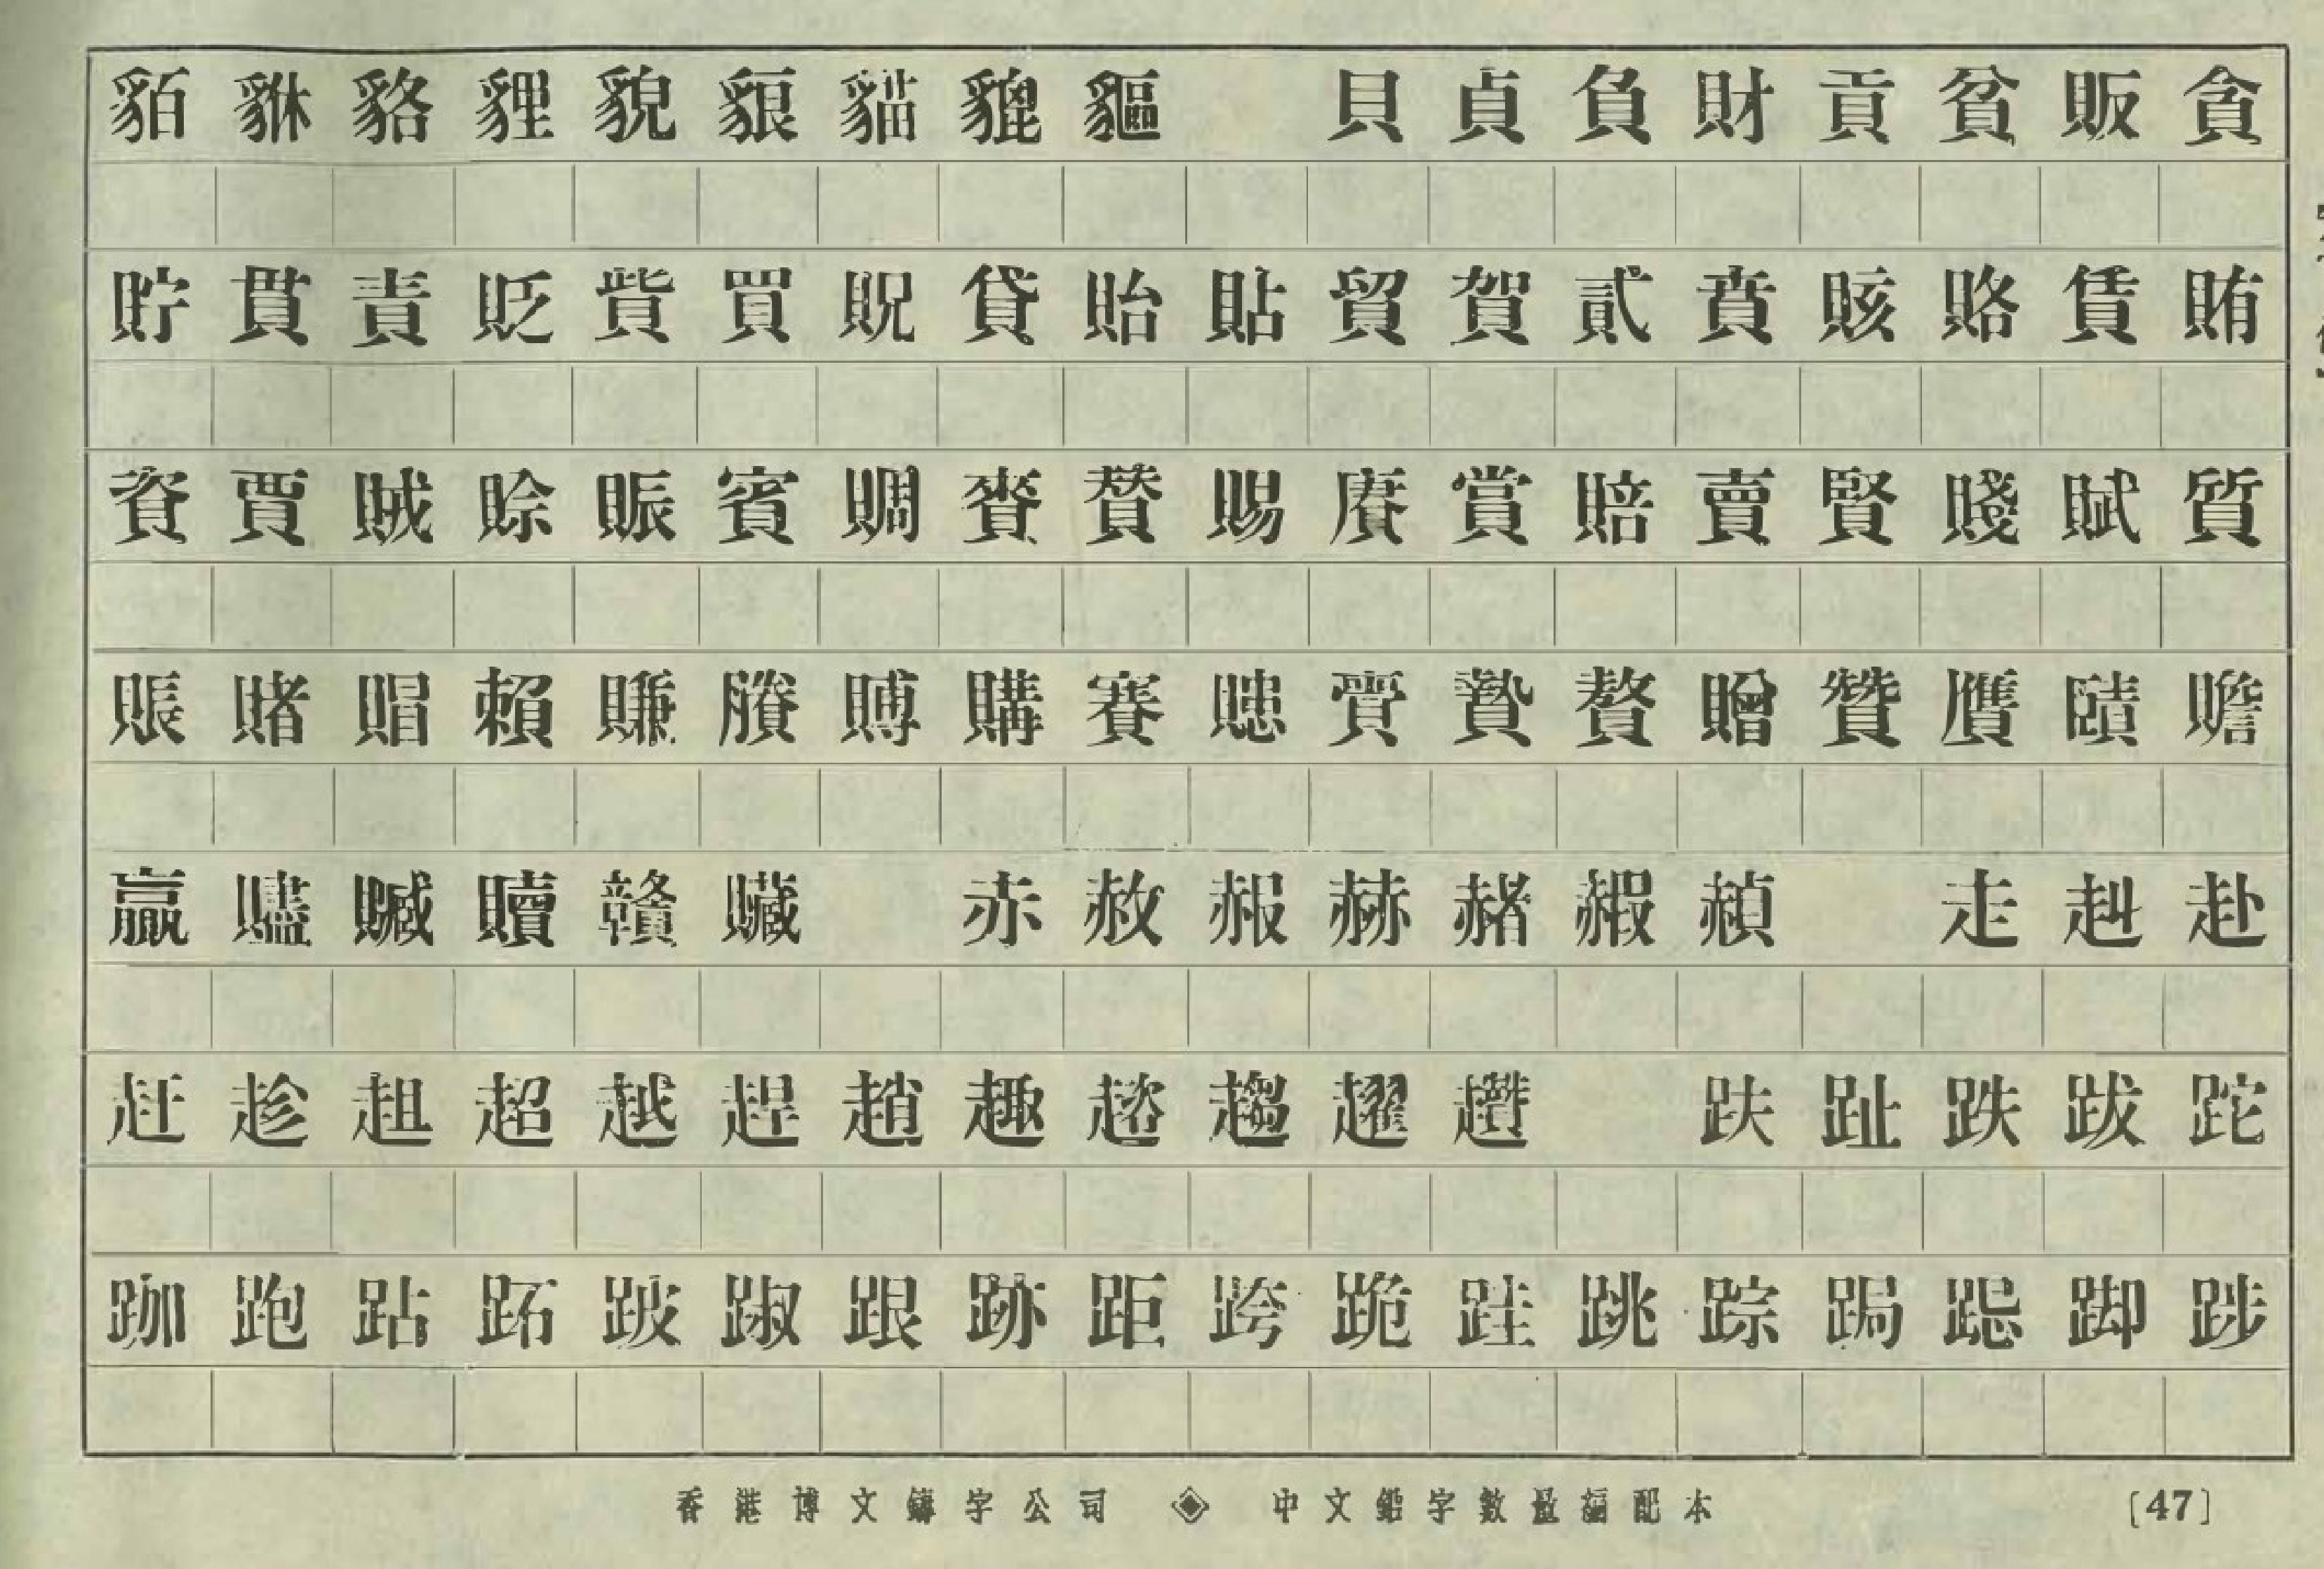 貊貅貉貍貌貇貓貔貙 貝貞負財貢貧販貪
貯貫責貶貲買貺貸貽貼貿賀貳賁賅賂賃賄
資賈賊賒賑賓賙賚賛賜賡賞賠賣賢賤賦質
賬賭賵賴賺賸賻購賽贃賮贄贅贈贊贗賾贍
贏贐贓贖贛贜 赤赦赧赫赭赮赬 走赳赴
赶趁趄超越趕趙趣趦趨趯趲 趺趾跌跋跎
跏跑跕跖跛踧跟跡距跨跪跬跳踪跼跽踋踄
香港博文鑄字公司 ◈ 中文鉛字數量編配本 〔47〕